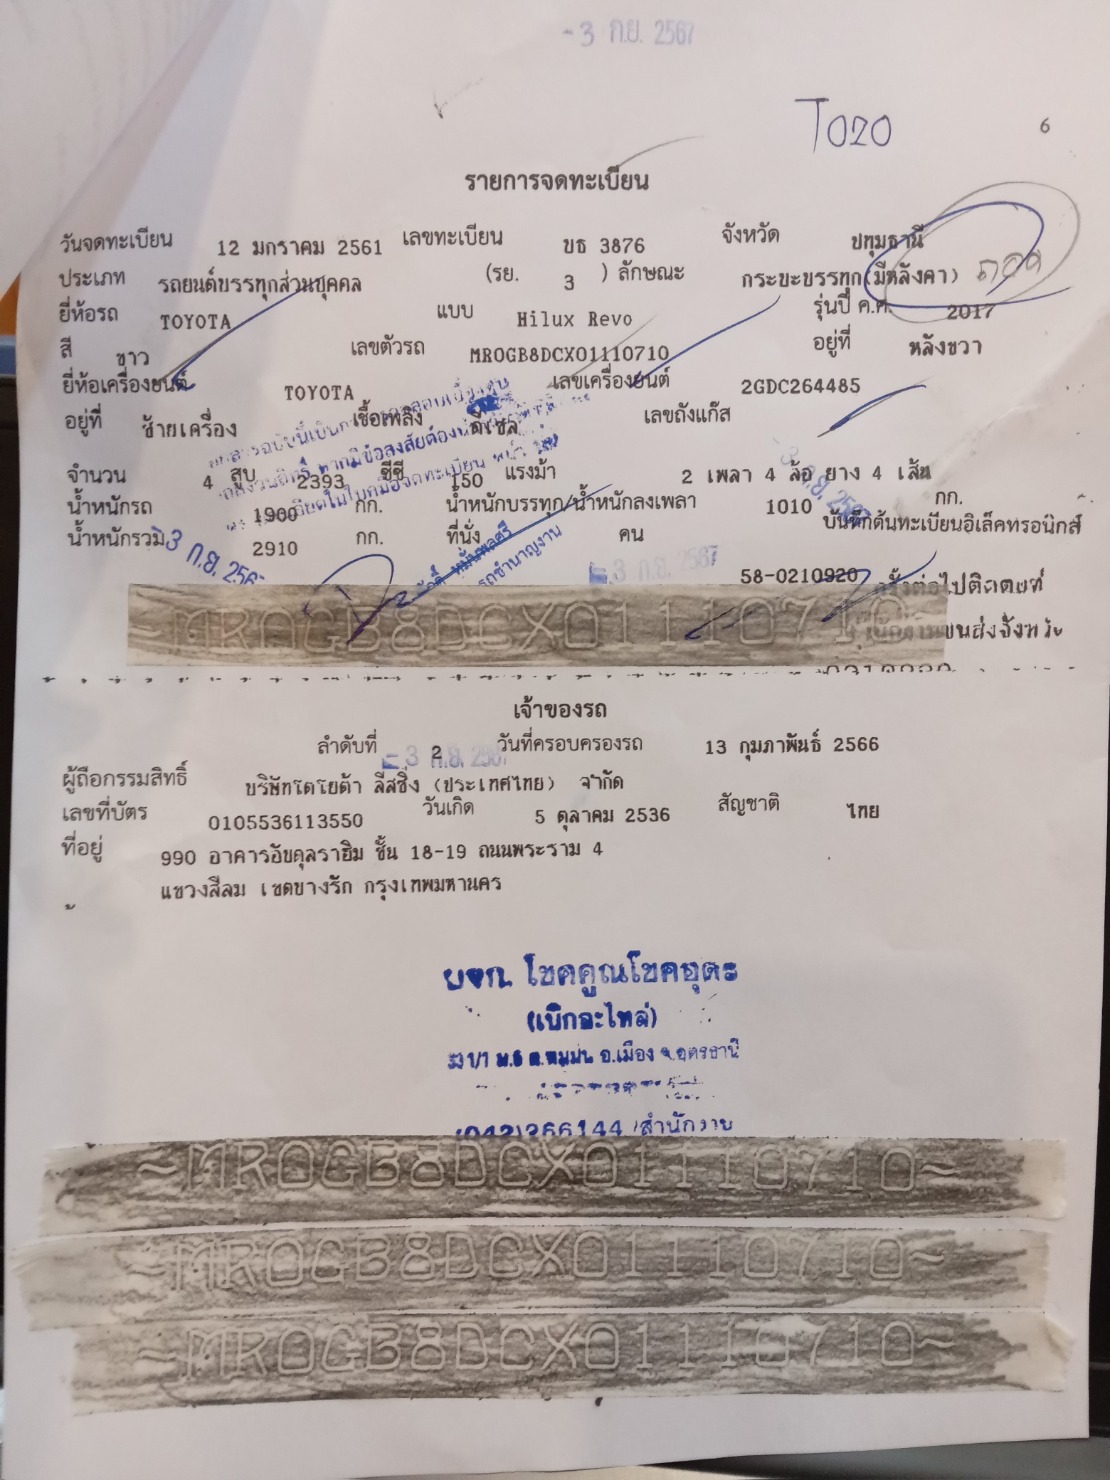 -3 ก.ย. 2567
T020
6
รายการจดทะเบียน
วันจดทะเบียน 12 มกราคม 2561 เลขทะเบียน ขธ 3876 จังหวัด ปทุมธานี
ประเภท รถยนต์บรรทุกส่วนบุคคล (รย. 3 ) ลักษณะ กระบะบรรทุก(มีหลังคา)
ยี่ห้อรถ TOYOTA แบบ Hilux Revo รุ่นปี ค.ศ. 2017
สี ขาว เลขตัวรถ MR0GB8DCX01110710 อยู่ที่ หลังขวา
ยี่ห้อเครื่องยนต์ TOYOTA เลขเครื่องยนต์ 2GDC264485
อยู่ที่ ซ้ายเครื่อง เชื้อเพลิง ดีเซล เลขถังแก๊ส
จำนวน 4 สูบ 2393 ซีซี 150 แรงม้า 2 เพลา 4 ล้อ ยาง 4 เส้น
น้ำหนักรถ 1900 กก. น้ำหนักบรรทุก/น้ำหนักลงเพลา 1010 กก.
บันทึกต้นทะเบียนอิเล็คทรอนิกส์
น้ำหนักรวม 2910 กก. ที่นั่ง คน
3 ก.ย. 256
3 ก.ย. 2567
58-0210920 ครั้งต่อไปติดต่อที่
~MR0GB8DCX01110710 ขนส่งจังหวัด
เจ้าของรถ
ลำดับที่ 2 วันที่ครอบครองรถ 13 กุมภาพันธ์ 2566
-3 ก.ย. 256
ผู้ถือกรรมสิทธิ์ บริษัทโตโยต้า ลีสซิ่ง (ประเทศไทย) จำกัด
เลขที่บัตร 0105536113550 วันเกิด 5 ตุลาคม 2536 สัญชาติ ไทย
ที่อยู่ 990 อาคารอับดุลราฮิม ชั้น 18-19 ถนนพระราม 4
แขวงสีลม เขตบางรัก กรุงเทพมหานคร
บจก. โชคคูณโชคอุดร
(เบิกอะไหล่)
ม.6 ต.หมูม่น อ.เมือง จ.อุดรธานี
(042)266144 /สำนักงาน
~MR0GB8DCX01110710~
~MR0GB8DCX01110710~
~MR0GB8DCX01110710~